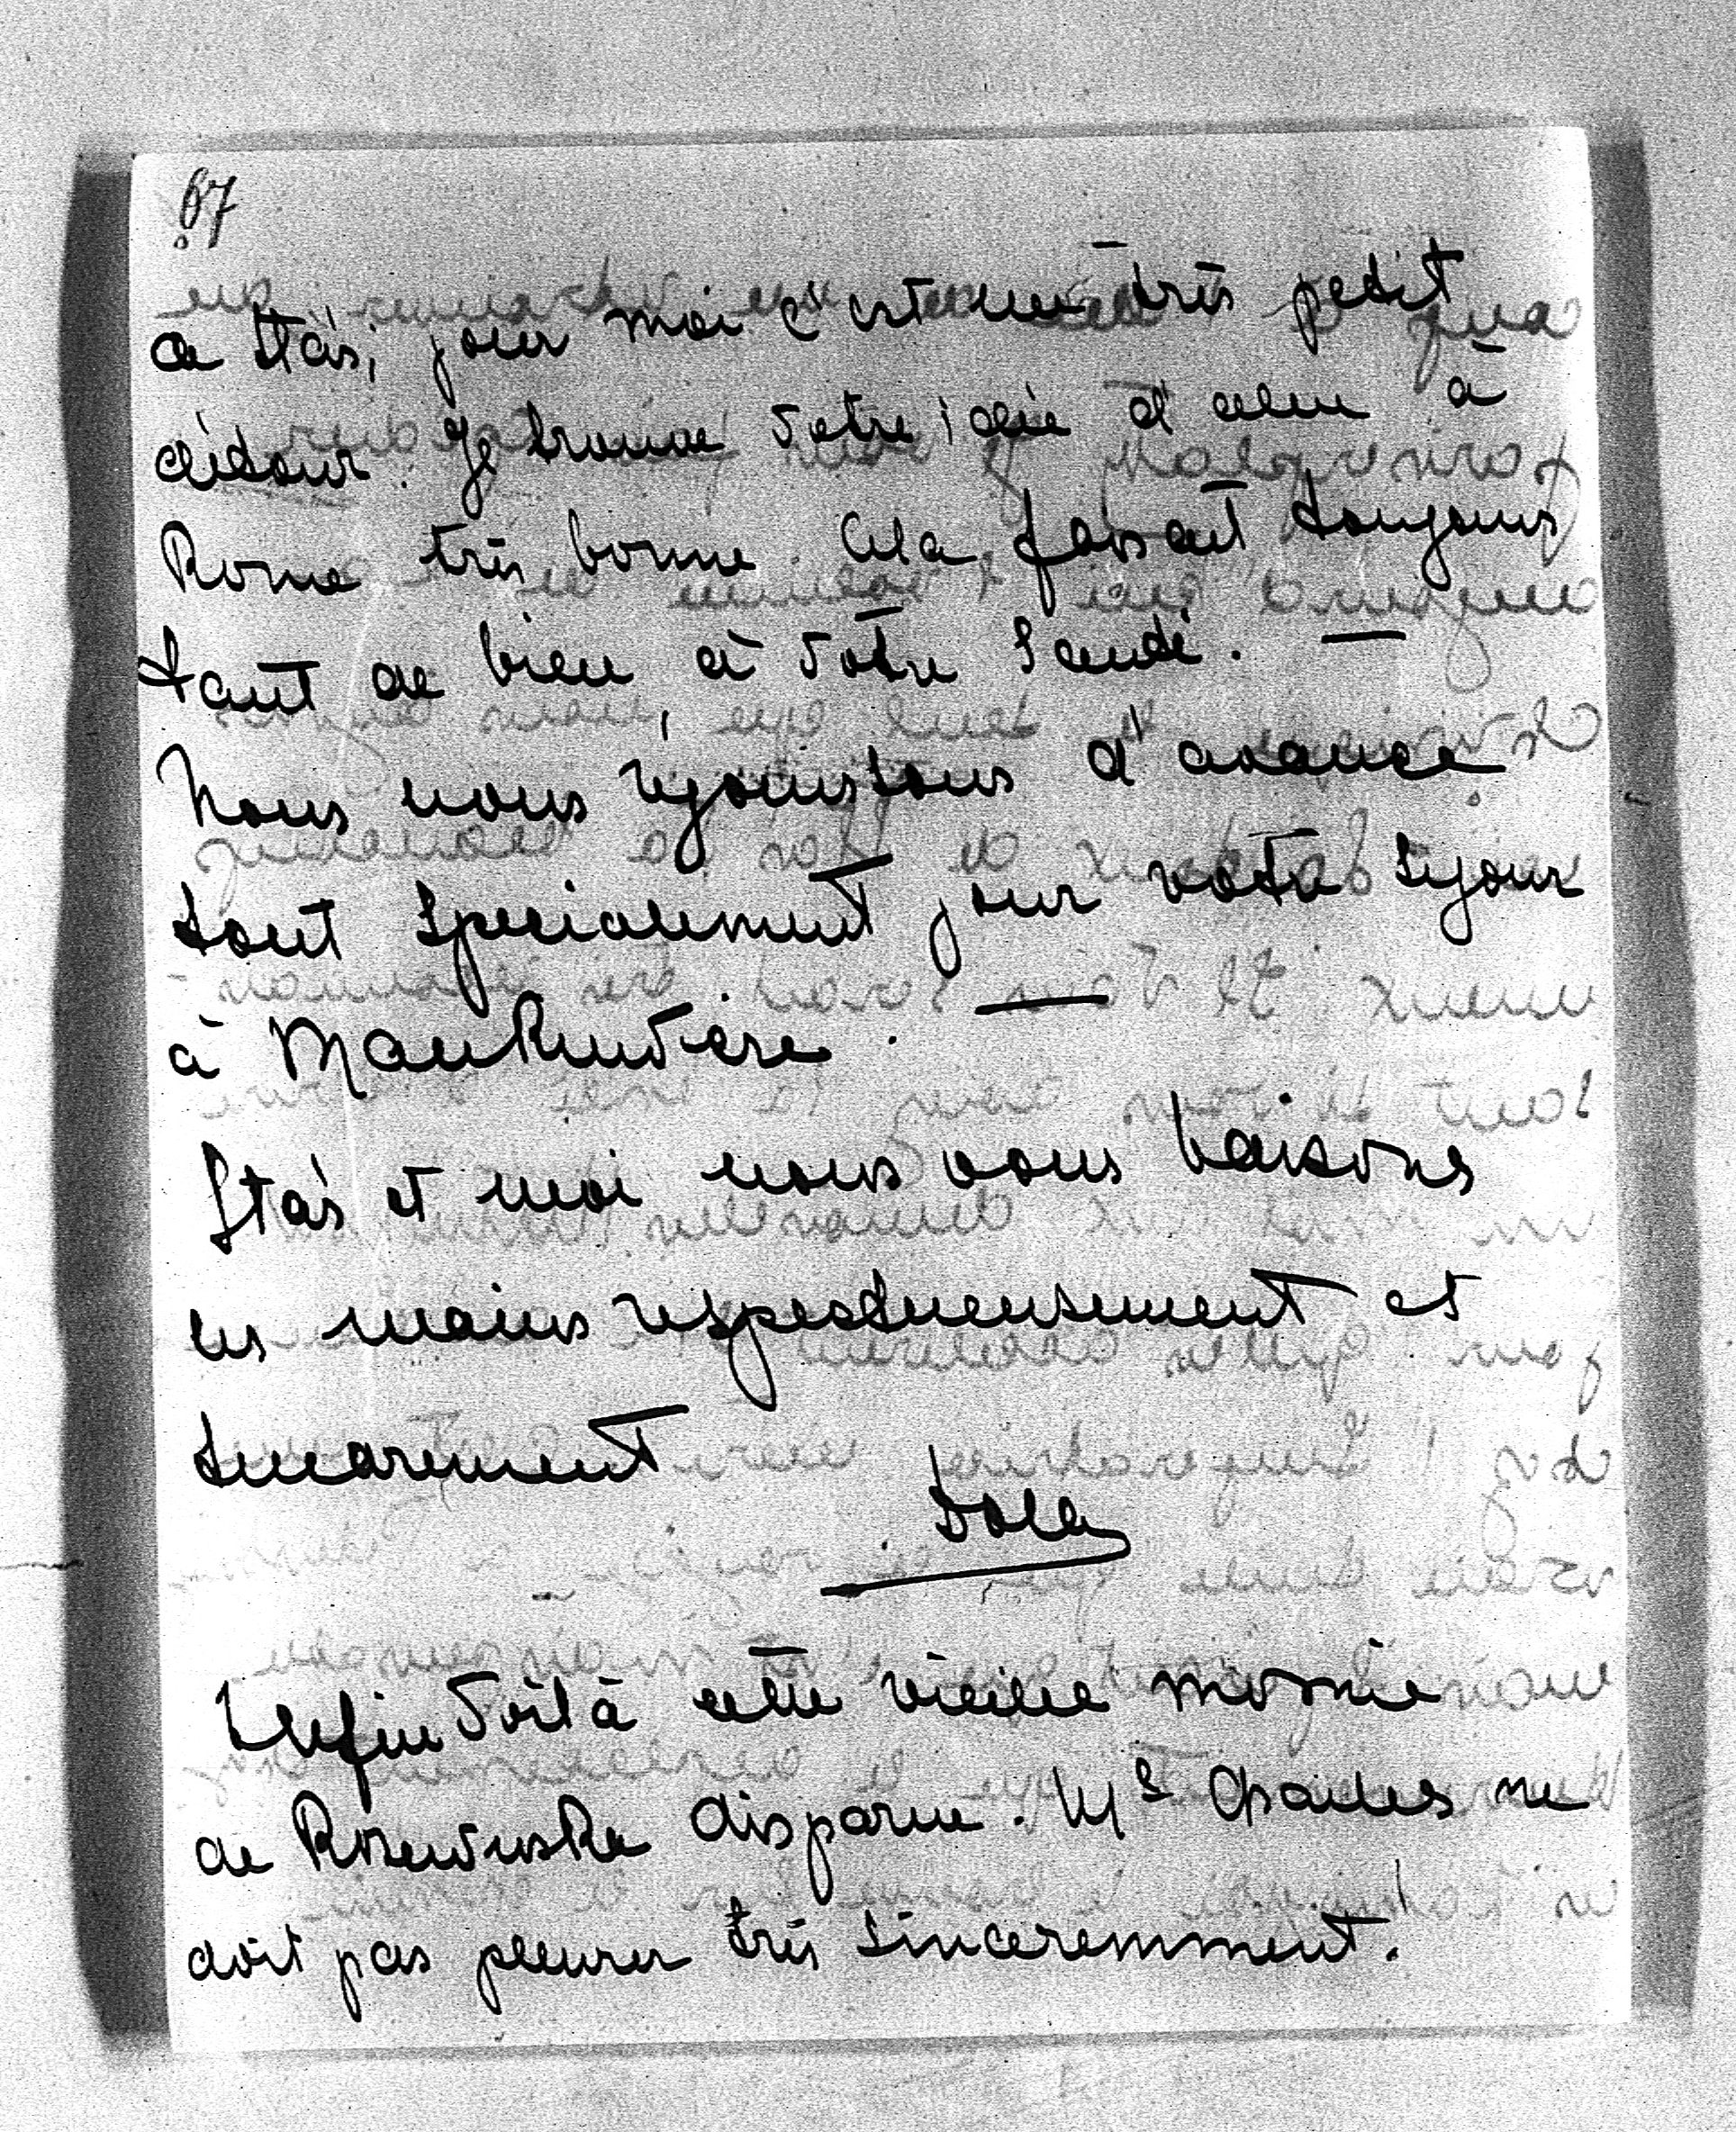 67
de Staś, pour moi c'est un très petit
détour. Je trouve votre idée d'aller à
Rome très bonne. Cela faisait toujours
tant de bien, à votre santé. —
Nous nous réjouissons d'avance
tout specialement pour votre séjour
à Mańkuvtère. —
Staś et moi nous vous baisons
les mains respectueusement et
sincerement
Dola
Enfin voilà cette vieille momie
de Rozwuska disparue. Mr Charles ne
doit pas pleurer très sinceremment.